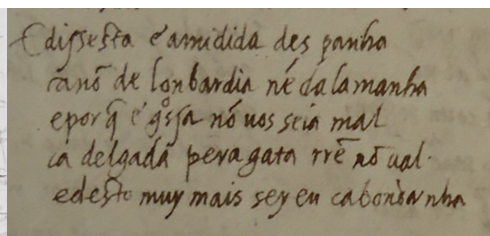 E dissesta e amidida des panha
ca nō de lonbardia nē dalamanha
e porq̄ e g°ssa nō uos seia mal
ca delgada pera gata rrē nō ual.
e desto muy mais sey eu cabondanha